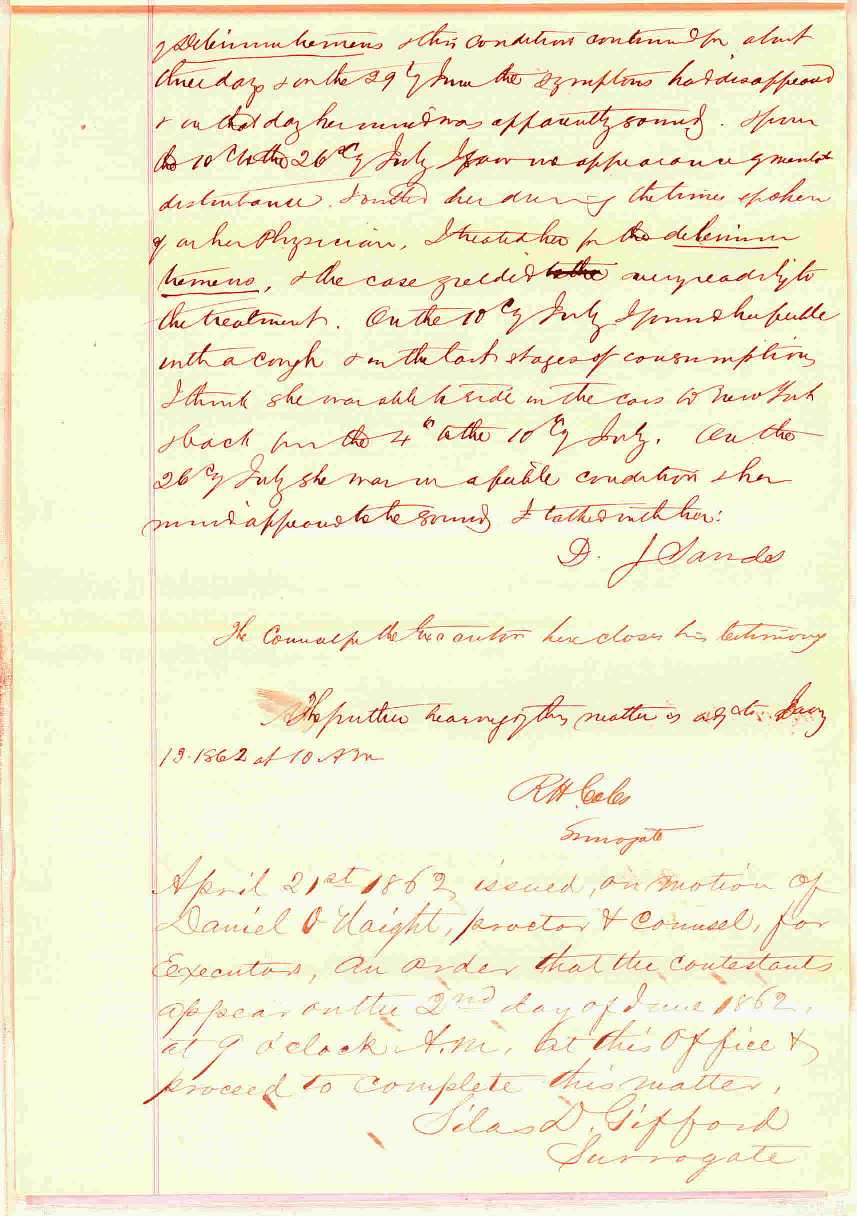 of Delirium tremens & this condition continued for about
three days & on the 29th of June the symptoms had disappeared
& on that day her mind was apparently sound. From
the 10th to the 26th of July I saw no appearance of mental
disturbance. I visited her during the times spoken
of as her Physician, I treated her for the delirium
tremens, & the case yielded to the very readily to
the treatment. On the 10th of July I found her feeble
with a cough & in the last stages of consumption
I think she was able to ride in the cars to New York
& back from the 4th to the 10th of July. On the
26th of July she was in a feeble condition & her
mind appeared to be sound I talked with her.
D. J Sands
The Counsel for the Executor here closes his testimony
The further hearing of this matter is adjd to Jany
13. 1862 at 10 A M
R H. Coles
Surrogate
April 21st 1862, issued, on motion of
Daniel O Haight, proctor & Counsel, for
Executors, an order that the contestants
appear on the 2nd day of June 1862,
at 9 O'clock A.M. at this Office &
proceed to complete this matter,
Silas D. Gifford
Surrogate